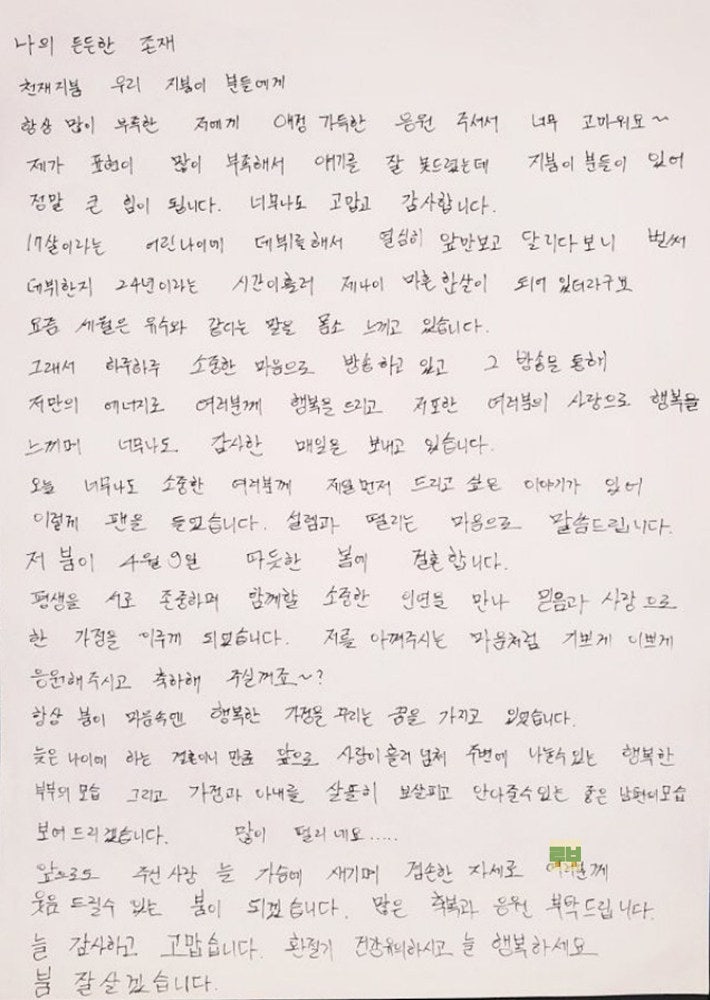 나의 든든한 존재
천재지붐 우리 지붐이 분들에게
항상 많이 부족한 저에게 애정 가득한 응원 주셔서 너무 고마워요~
제가 표현이 많이 부족해서 얘기를 잘 못드렸는데 지붐이 분들이 있어
정말 큰 힘이 됩니다. 너무나도 고맙고 감사합니다.
17살이라는 어린나이에 데뷔를해서 열심히 앞만보고 달리다보니 벌써
데뷔한지 24년이라는 시간이흘러 제나이 마흔한살이 되어 있더라구요
요즘 세월은 유수와 같다는 말을 몸소 느끼고 있습니다.
그래서 하루하루 소중한 마음으로 방송하고 있고 그 방송을 통해
저만의 에너지로 여러분께 행복을 드리고 저또한 여러분의 사랑으로 행복을
느끼며 너무나도 감사한 매일을 보내고 있습니다.
오늘 너무나도 소중한 여러분께 제일먼저 드리고 싶은 이야기가 있어
이렇게 펜을 들었습니다. 설렘과 떨리는 마음으로 말씀드립니다.
저 붐이 4월 9일 따듯한 봄에 결혼합니다.
평생을 서로 존중하며 함께할 소중한 인연을 만나 믿음과 사랑으로
한 가정을 이루게 되었습니다. 저를 아껴주시는 마음처럼 기쁘게 이쁘게
응원해주시고 축하해 주실꺼죠~?
항상 붐이 마음속엔 행복한 가정을 꾸리는 꿈을 가지고 있었습니다.
늦은 나이에 하는 결혼이니 만큼 앞으로 사랑이흘러 넘쳐 주변에 나눌수있는 행복한
부부의 모습 그리고 가정과 아내를 살뜰히 보살피고 안아줄수있는 좋은 남편의모습
보여드리겠습니다. 많이 떨리네요.....
앞으로도 주신 사랑 늘 가슴에 새기며 겸손한 자세로 여러분께
웃음 드릴수 있는 붐이 되겠습니다. 많은 축복과 응원 부탁드립니다.
늘 감사하고 고맙습니다. 환절기 건강유의하시고 늘 행복하세요
붐 잘살겠습니다.